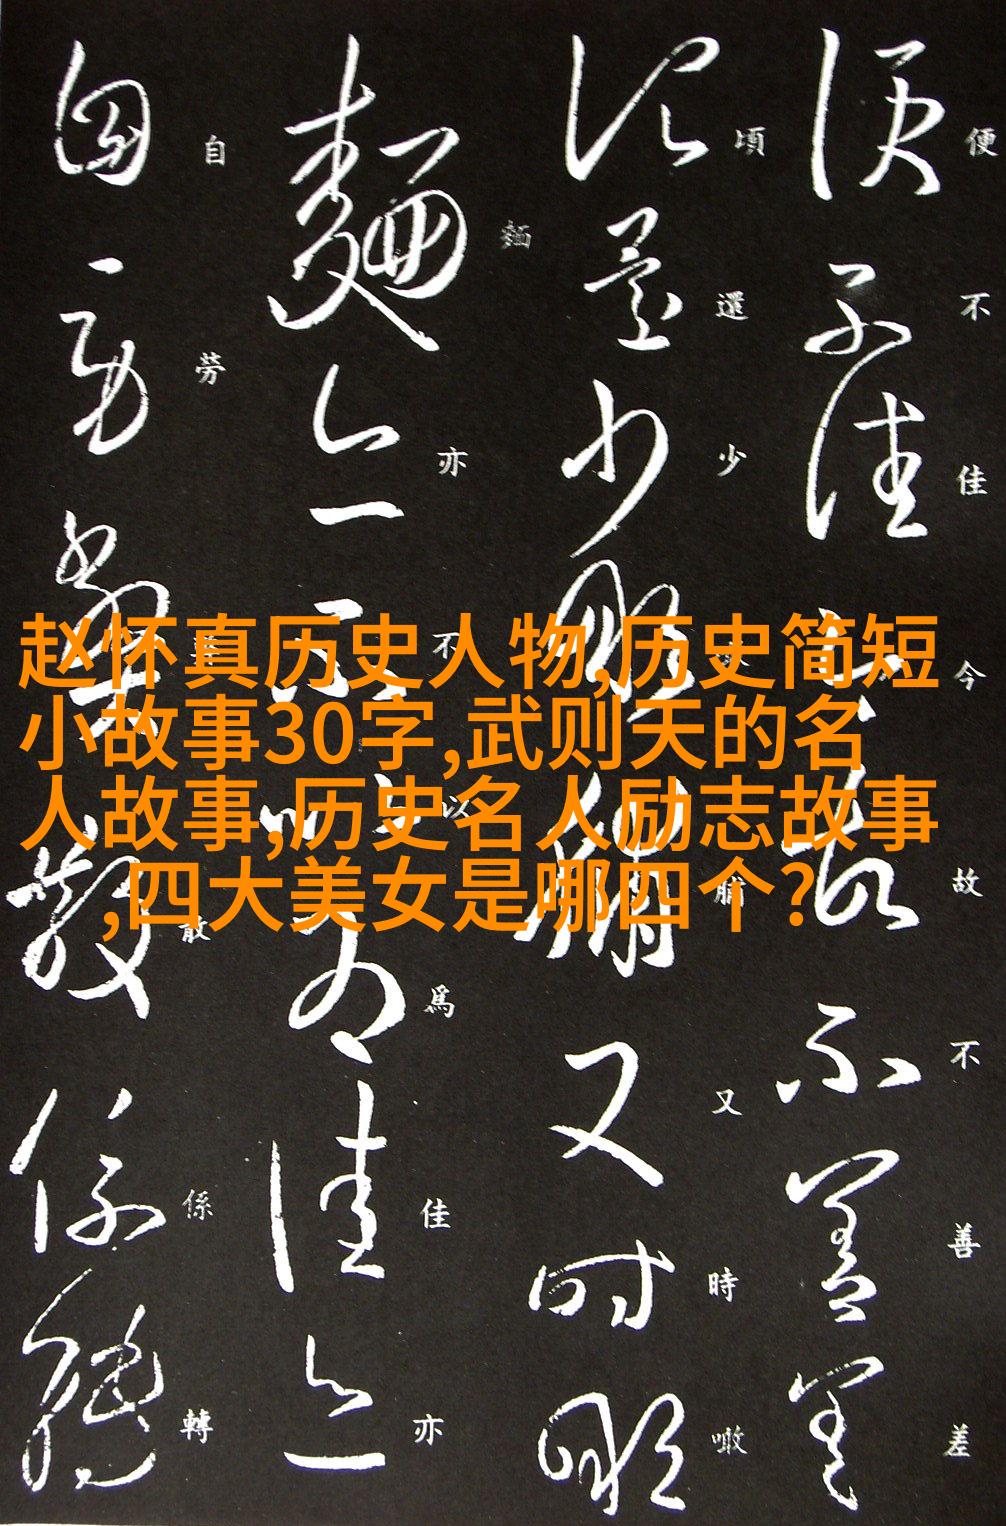 赵怀真历史人物,历史简短
小故事30字,武则天的名
人故事,历史名人励志故事
,四大美女是哪四个?
便不佳今故不善差
頃還少噉脯又時噉
麵亦不以為佳亦
自勞弊散係轉